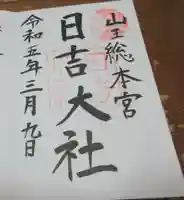 山王総本宮
日吉大社
令和五年三月九日